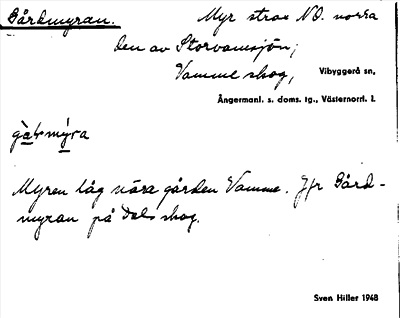 Gårdmyran.
Myr strax NO. norra
den av Storvamsjön;
Vamme skog,
Vibyggerå sn,
Ångermanl. s. doms. tg., Västernorrl. l.
Myren låg nära gården Vamme. Jfr Gård-
myran på Dals skog.
Sven Hiller 1948